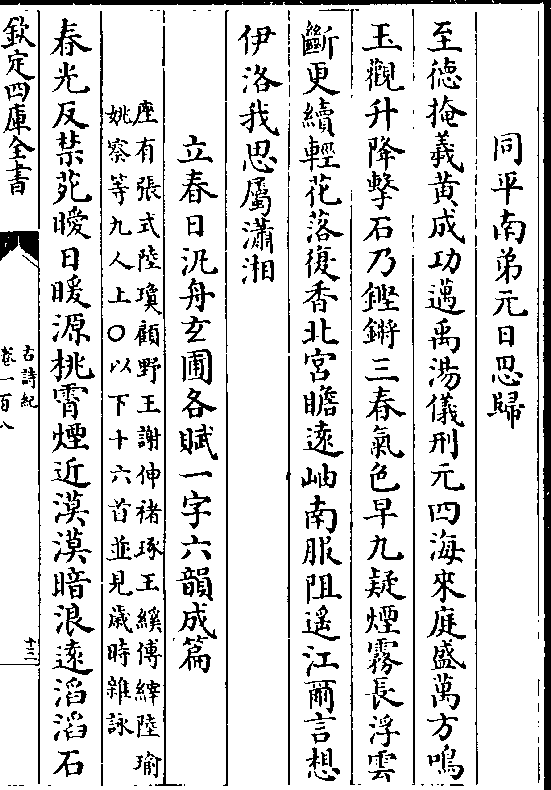 同平南弟元日思歸
至德掩義黄成功邁禹湯儀刑元四海來庭盛萬方鳴
玉觀升降擊石乃鏗鏘三春氣色早九疑煙霧長浮雲
斷更續輕花落復香北宮瞻遠岫南服阻遥江爾言想
伊洛我思屬瀟湘
立春日汎舟玄圃各賦一字六韻成篇
座有張式陸瓊顧野王謝伸禇琢王縘傅縡陸瑜
姚察等九人上○以下十六首並見嵗時雜詠
春光反禁苑曖日暖源桃霄煙近漠漠暗浪遠滔滔石
欽定四庫全書
古詩紀
卷一百八
十三